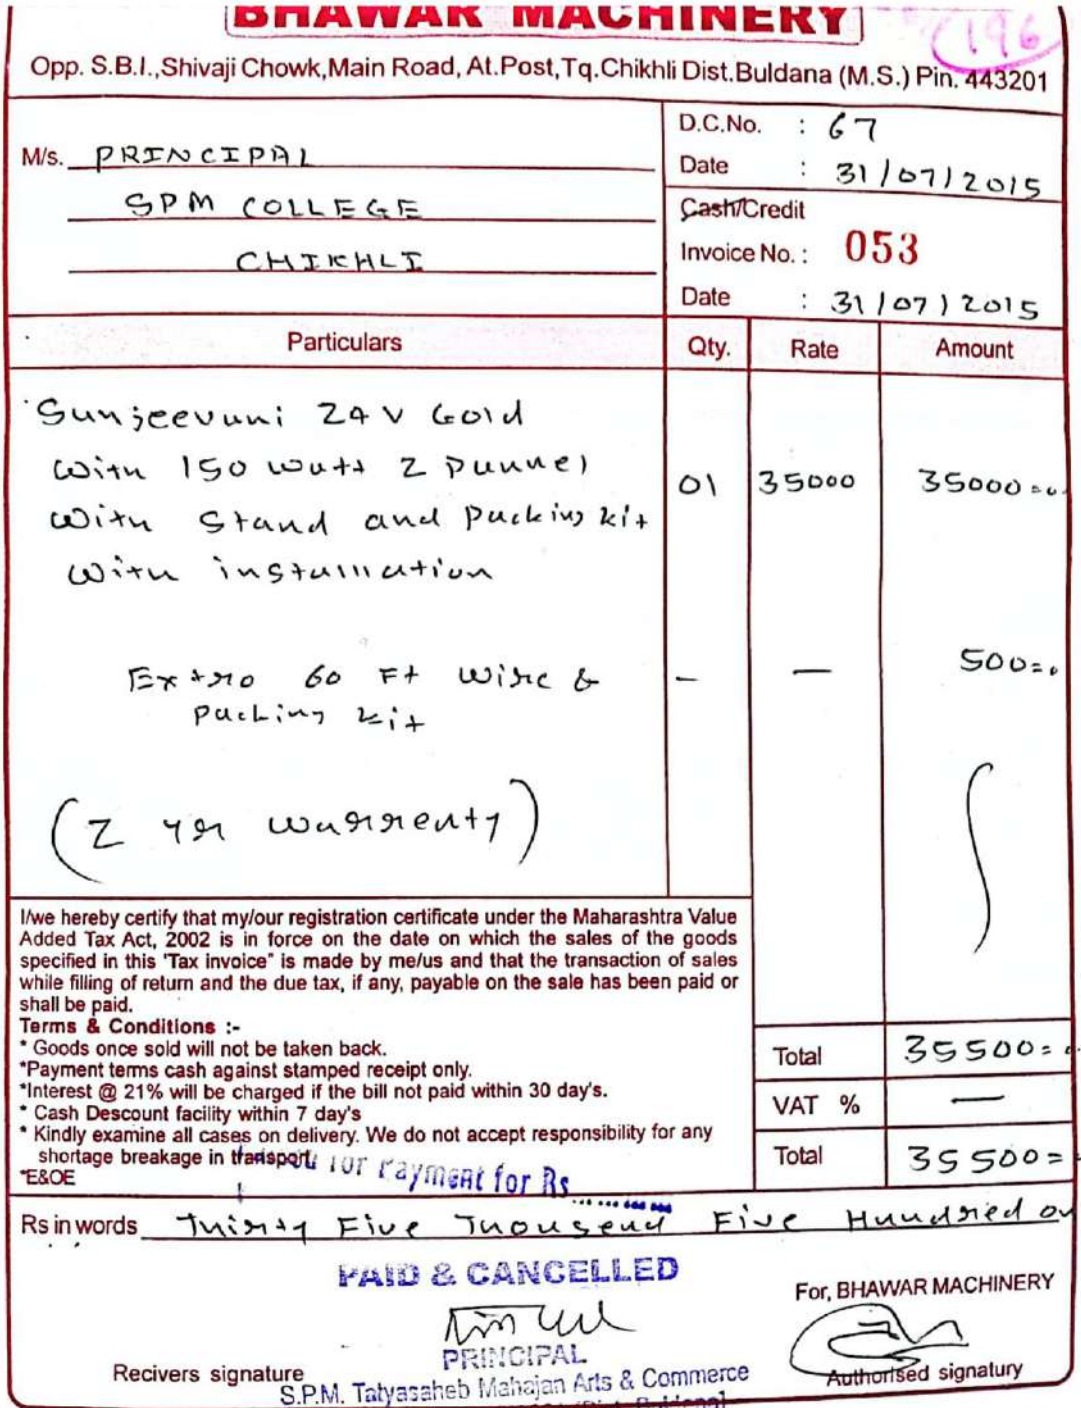 BHAWAR MACHINERY
196
Opp. S.B.I.,Shivaji Chowk,Main Road, At.Post,Tq.Chikhli Dist.Buldana (M.S.) Pin. 443201
M/s. PRINCIPAL
SPM COLLEGE
CHIKHLI
D.C.No. : 67
Date : 31/07/2015
Cash/Credit
Invoice No. : 053
Date : 31/07/2015
Particulars Qty. Rate Amount
Sunjeevuni 24 V Gold
With 150 watt 2 punnel 01 35000 35000=
With Stand and Packing kit
With installation
Extra 60 Ft Wire & - — 500=
Packing kit
(2 yr warrenty)
I/we hereby certify that my/our registration certificate under the Maharashtra Value
Added Tax Act, 2002 is in force on the date on which the sales of the goods
specified in this 'Tax invoice" is made by me/us and that the transaction of sales
while filling of return and the due tax, if any, payable on the sale has been paid or
shall be paid.
Terms & Conditions :-
* Goods once sold will not be taken back.
*Payment terms cash against stamped receipt only.
*Interest @ 21% will be charged if the bill not paid within 30 day's.
* Cash Descount facility within 7 day's
* Kindly examine all cases on delivery. We do not accept responsibility for any
shortage breakage in transport.
*E&OE
for Payment for Rs
Total 35500=
VAT % —
Total 35500=
Rs in words Thirty Five Thousend Five Hundried on
PAID & CANCELLED
For, BHAWAR MACHINERY
PRINCIPAL
Recivers signature
S.P.M. Tatyasaheb Mahajan Arts & Commerce
Authorised signatury